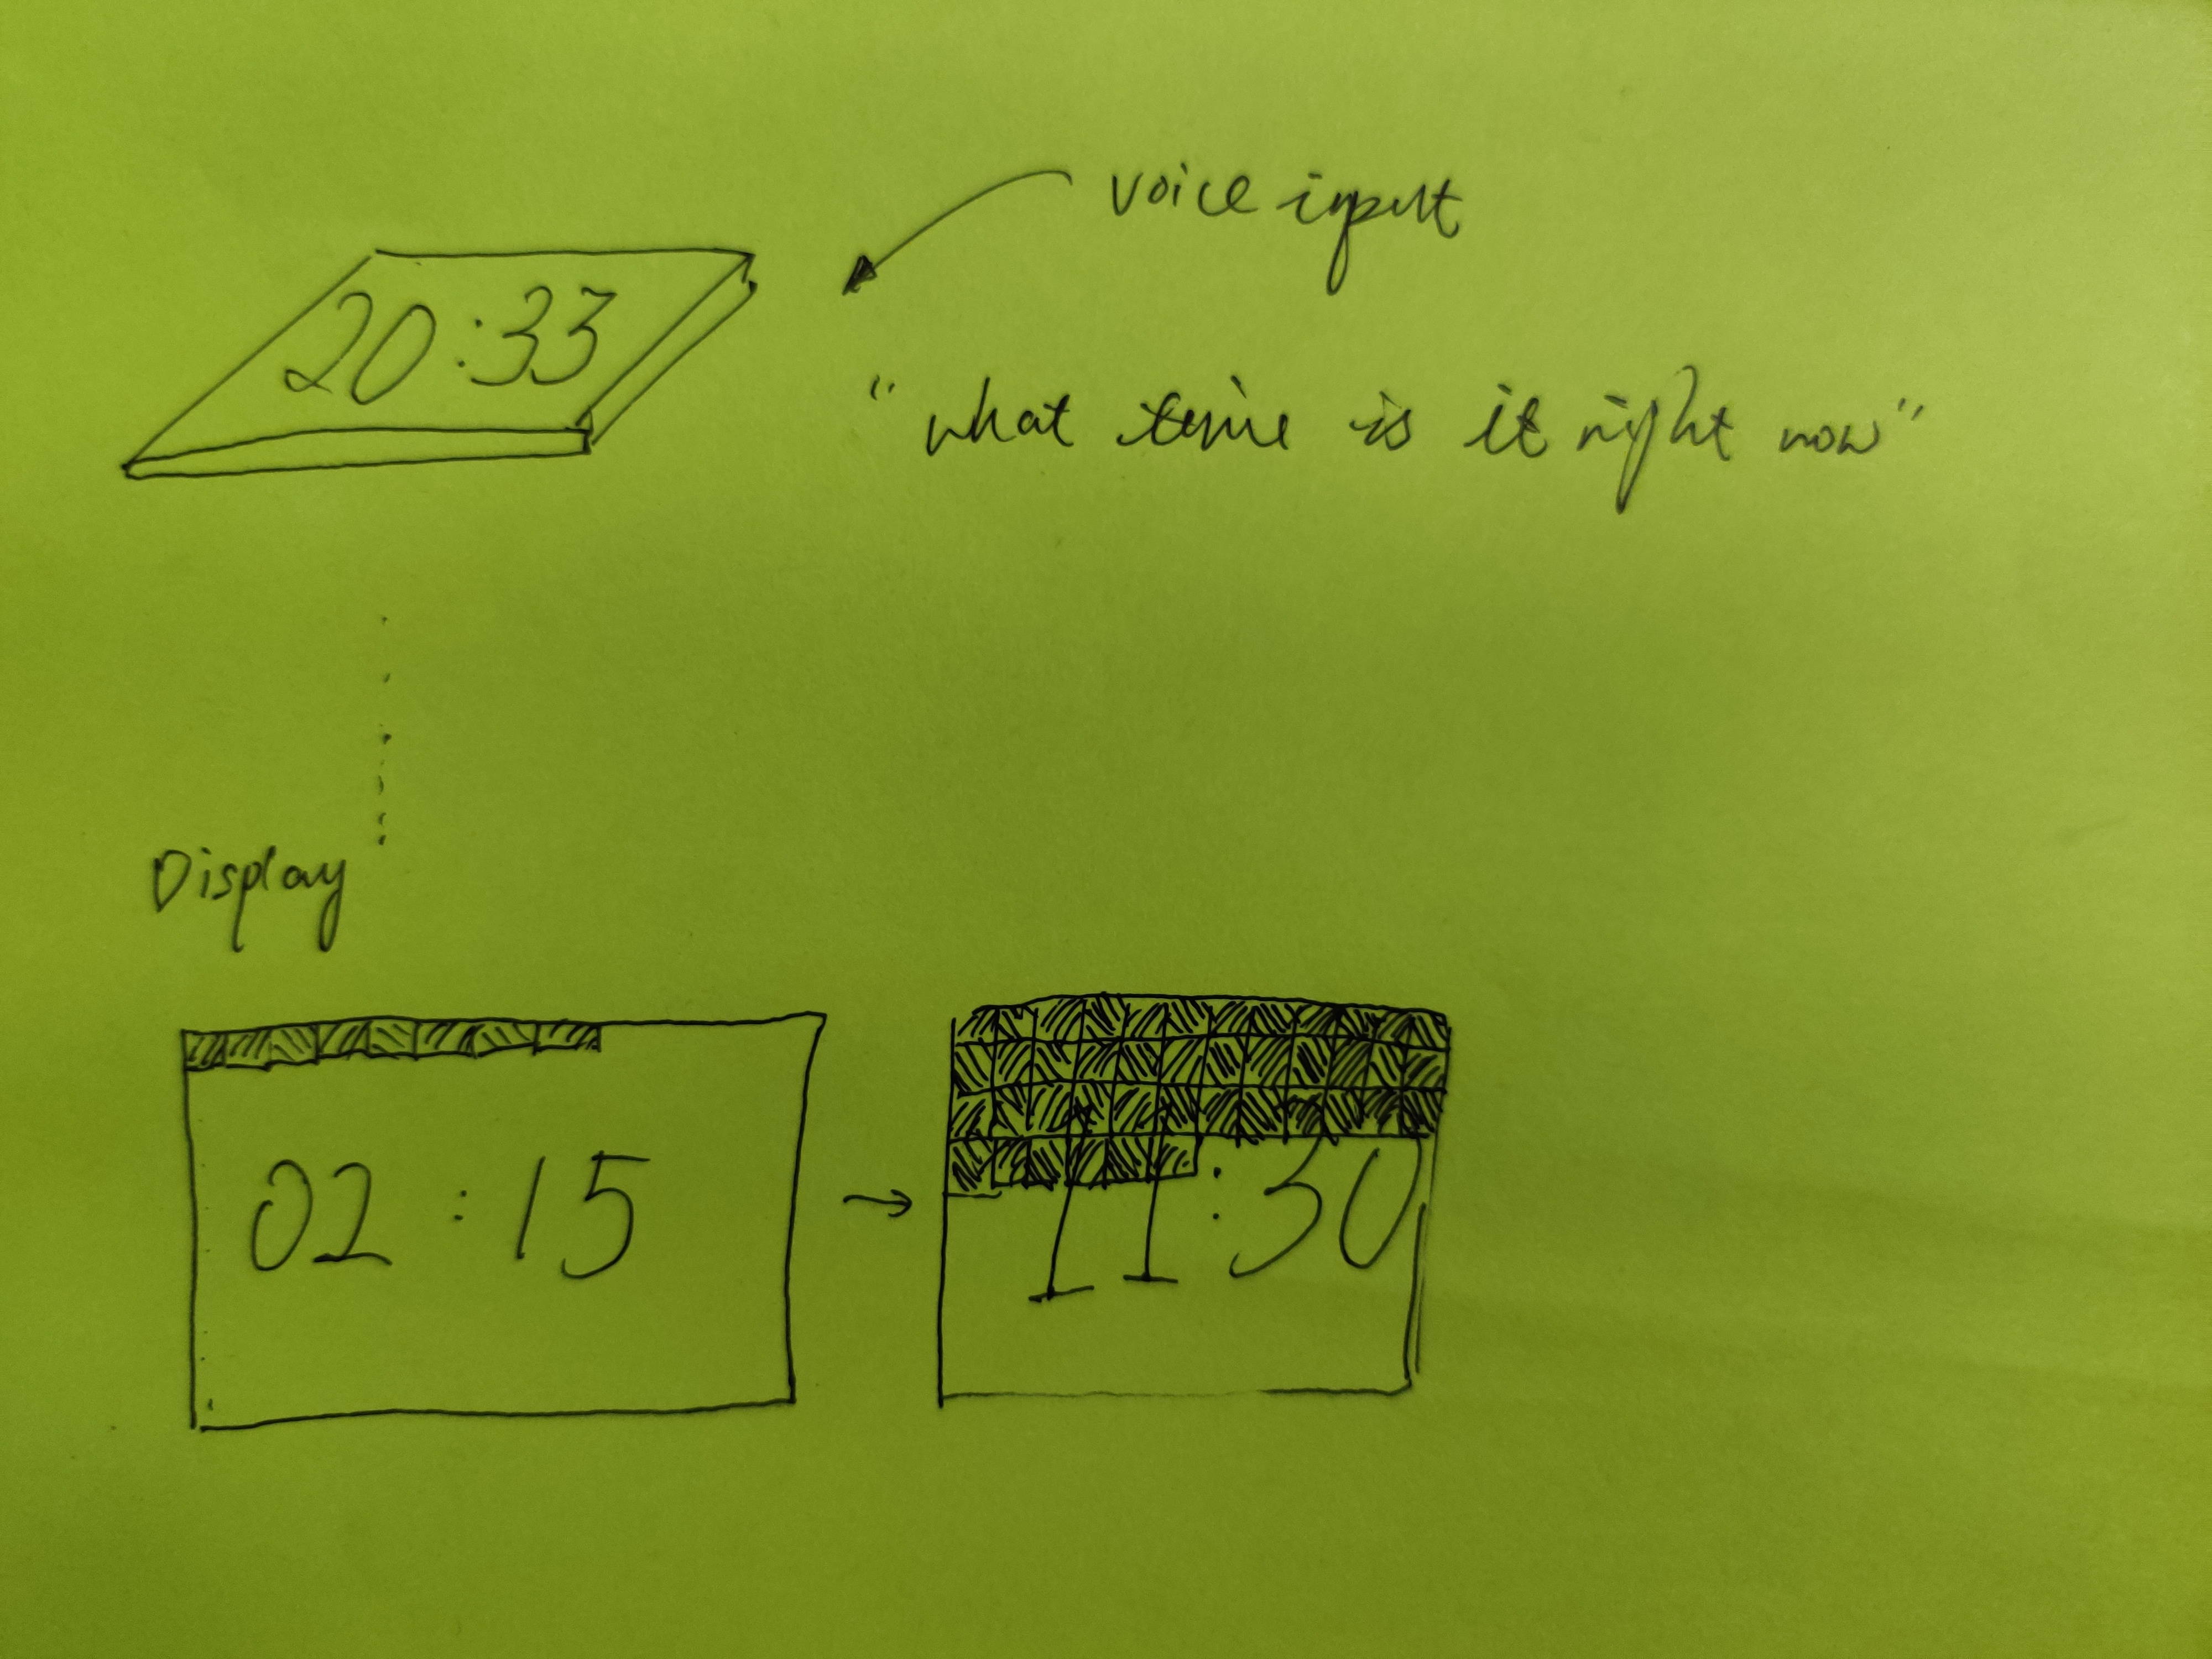 voice input
20:33
"what time is it right now"
Display
02:15
11:30